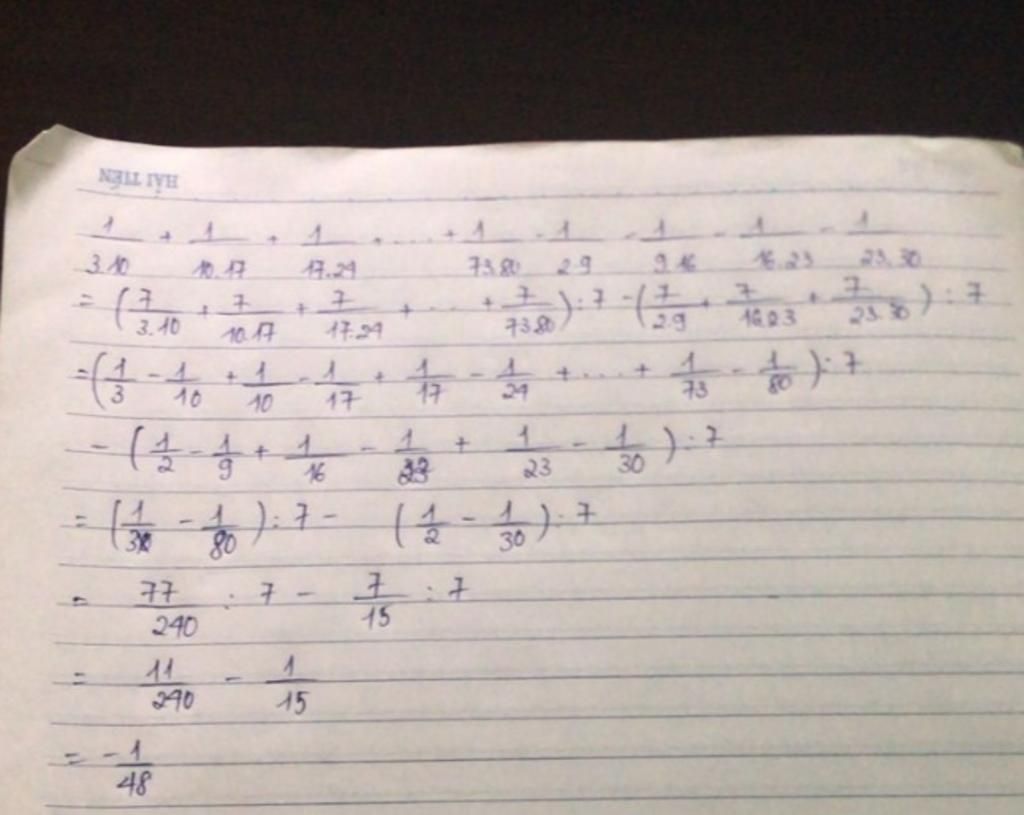 HẢI TIẾN
1/3.10 + 1/10.17 + 1/17.24 + .... + 1/73.80 - 1/2.9 - 1/9.16 - 1/16.23 - 1/23.30
= (7/3.10 + 7/10.17 + 7/17.24 + ... + 7/73.80) : 7 - (7/2.9 + 7/16.23 + 7/23.30) : 7
= (1/3 - 1/10 + 1/10 - 1/17 + 1/17 - 1/24 + ... + 1/73 - 1/80) : 7
- (1/2 - 1/9 + 1/16 - 1/23 + 1/23 - 1/30) : 7
= (1/3 - 1/80) : 7 - (1/2 - 1/30) : 7
= 77/240 : 7 - 7/15 : 7
= 11/240 - 1/15
= -1/48